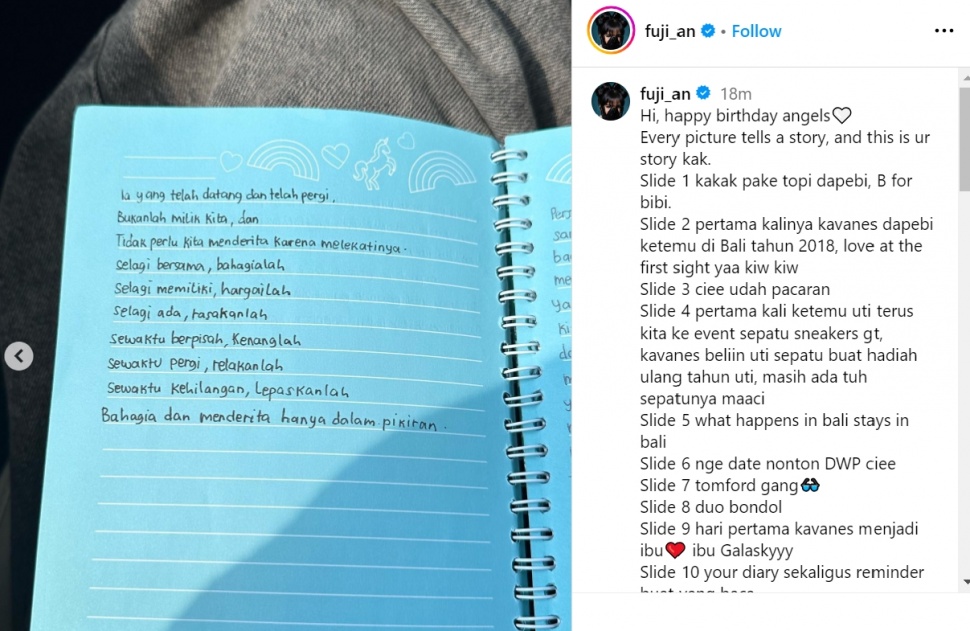 Ia yang telah datang dan telah pergi,
Bukanlah milik kita, dan
Tidak perlu kita menderita karena melekatinya.
selagi bersama, bahagialah
Selagi memiliki, hargailah
selagi ada, rasakanlah
sewaktu berpisah, kenanglah
sewaktu pergi, relakanlah
Sewaktu kehilangan, Lepaskanlah
Bahagia dan menderita hanya dalam pikiran.
fuji_an • Follow
fuji_an 18m
Hi, happy birthday angels♡
Every picture tells a story, and this is ur
story kak.
Slide 1 kakak pake topi dapebi, B for
bibi.
Slide 2 pertama kalinya kavanes dapebi
ketemu di Bali tahun 2018, love at the
first sight yaa kiw kiw
Slide 3 ciee udah pacaran
Slide 4 pertama kali ketemu uti terus
kita ke event sepatu sneakers gt,
kavanes beliin uti sepatu buat hadiah
ulang tahun uti, masih ada tuh
sepatunya maaci
Slide 5 what happens in bali stays in
bali
Slide 6 nge date nonton DWP ciee
Slide 7 tomford gang🕶️
Slide 8 duo bondol
Slide 9 hari pertama kavanes menjadi
ibu❤️ ibu Galaskyyy
Slide 10 your diary sekaligus reminder